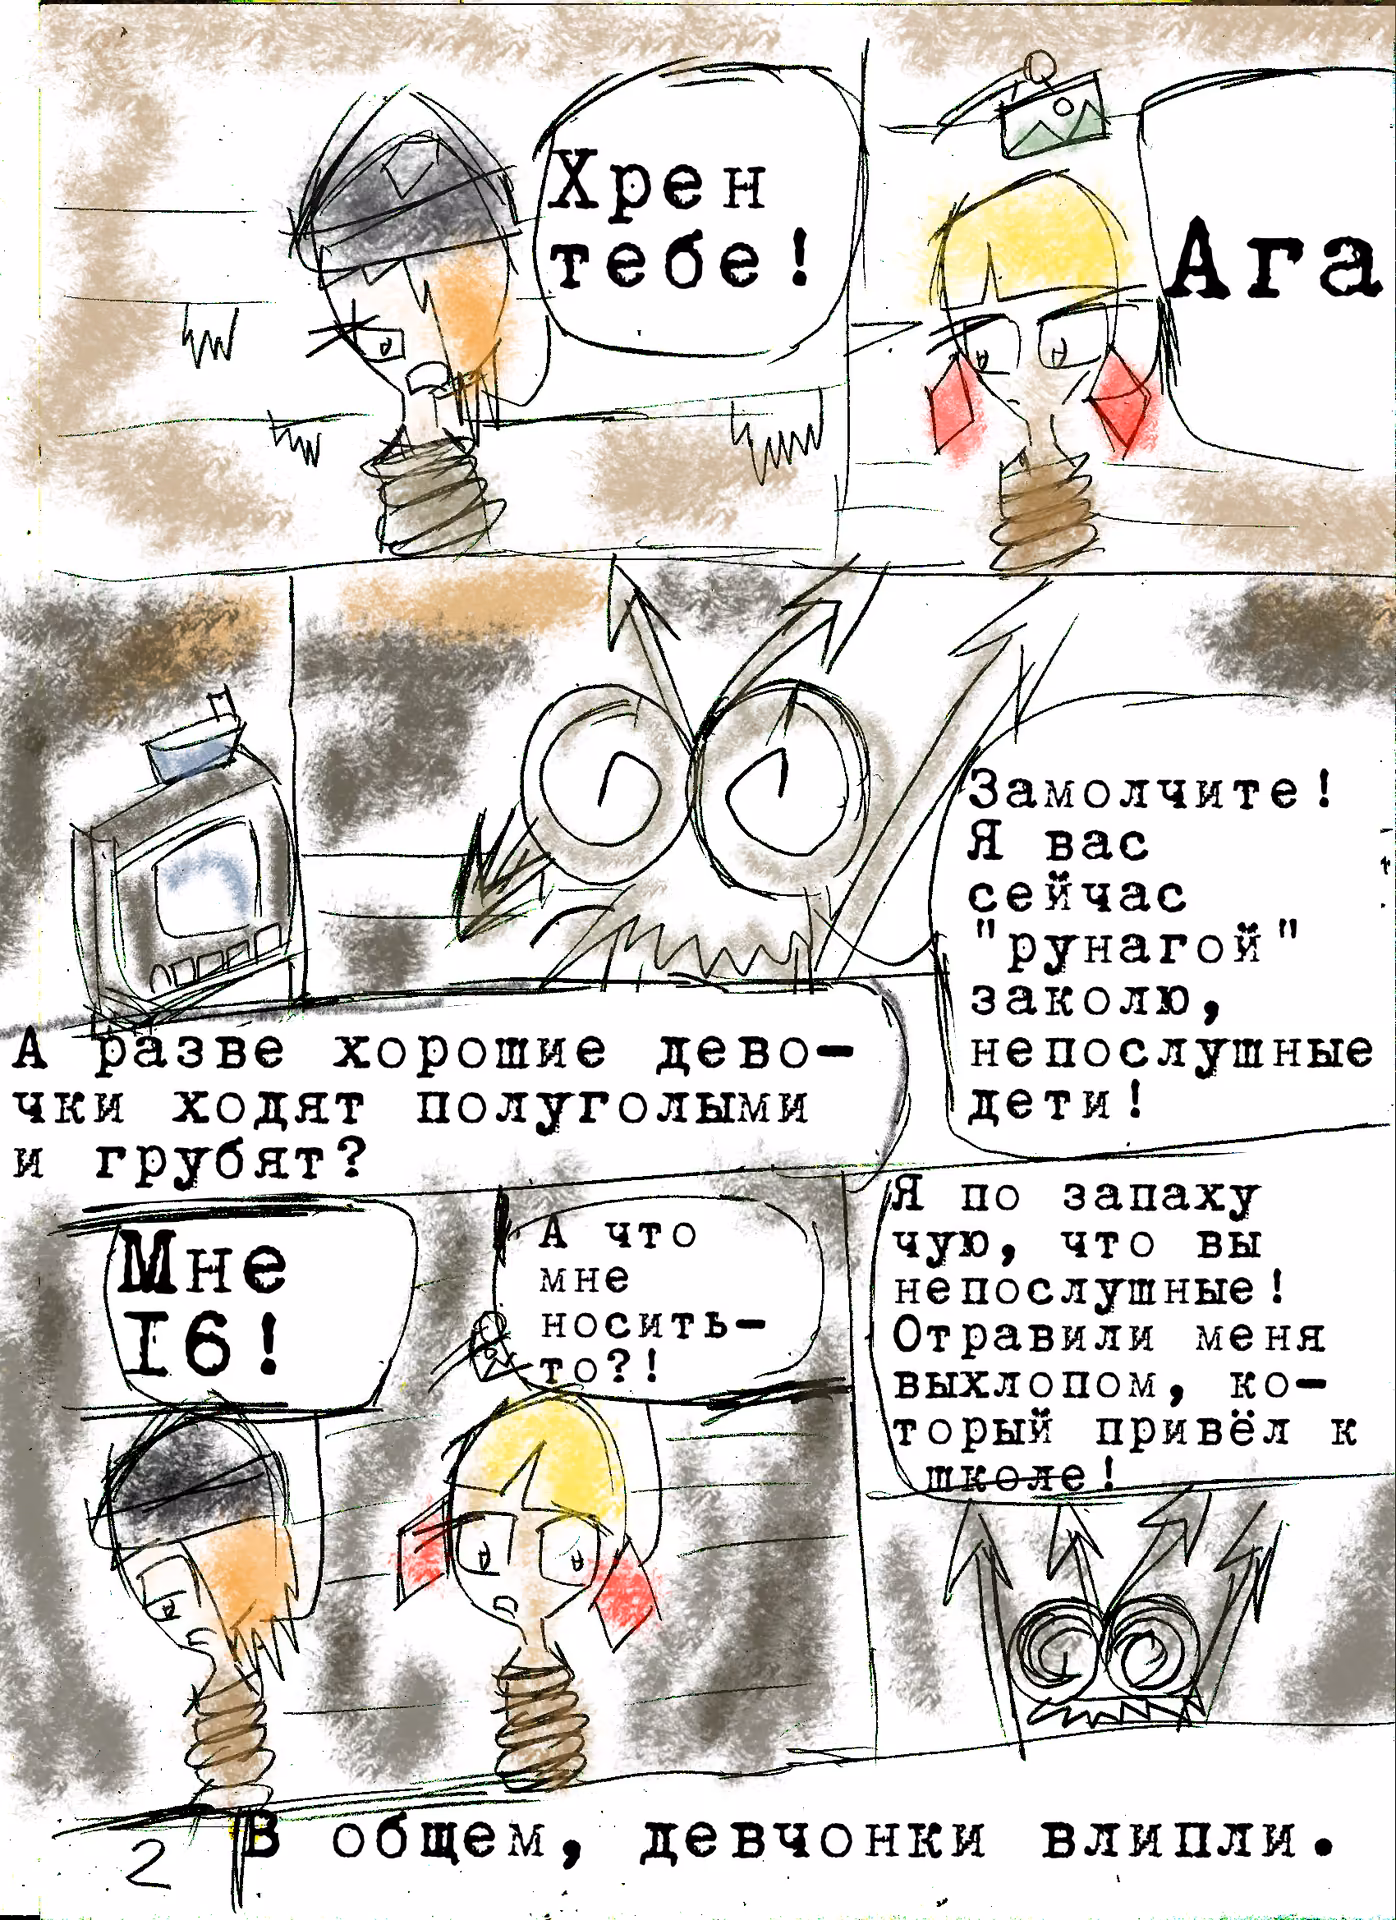 Хрен
тебе!
Ага
Замолчите!
Я вас
сейчас
"рунагой"
заколю,
непослушные
дети!
А разве хорошие дево-
чки ходят полуголыми
и грубят?
Мне
16!
А что
мне
носить-
то?!
Я по запаху
чую, что вы
непослушные!
Отравили меня
выхлопом, ко-
торый привёл к
школе!
2
В общем, девчонки влипли.